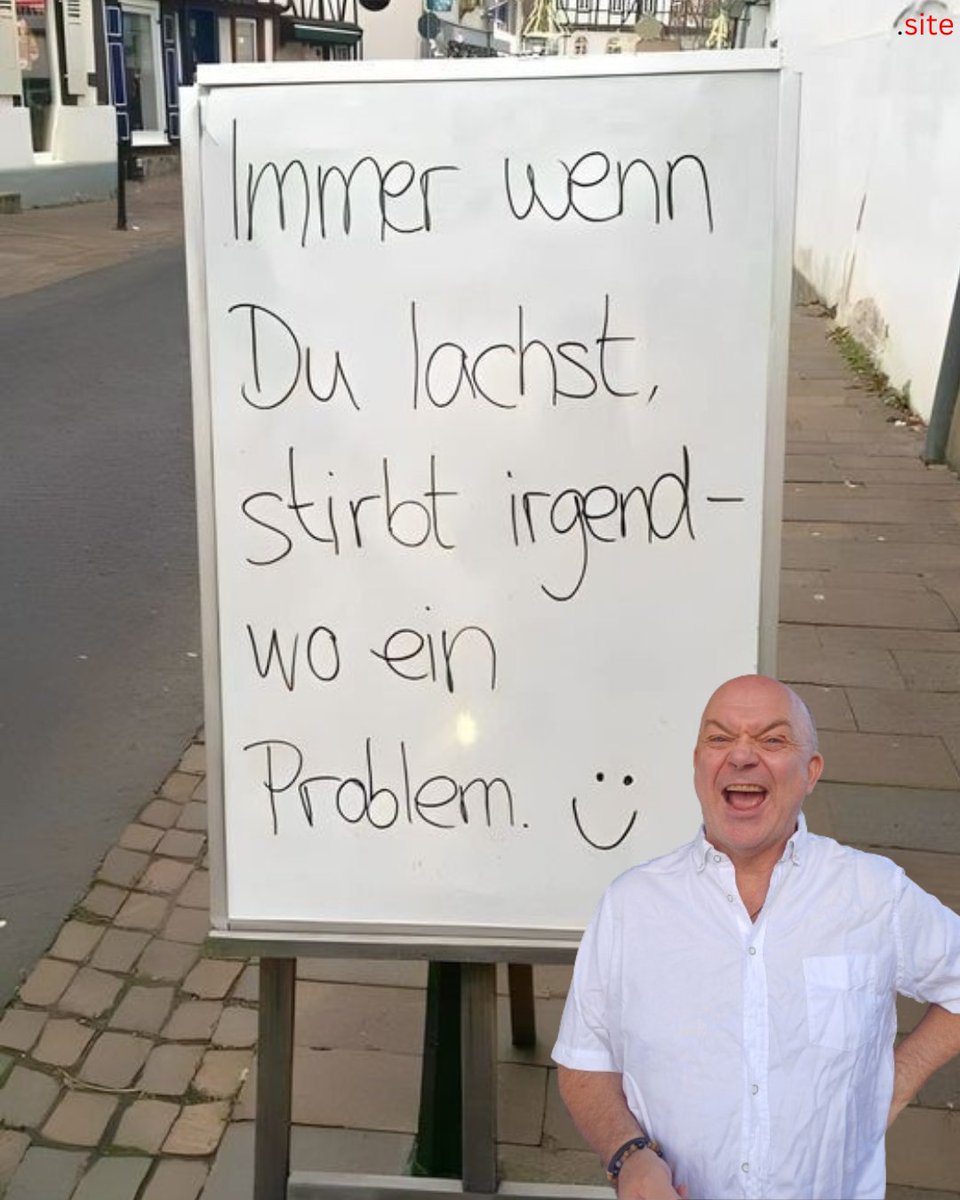 .site
Immer wenn
Du lachst,
stirbt irgend-
wo ein
Problem.